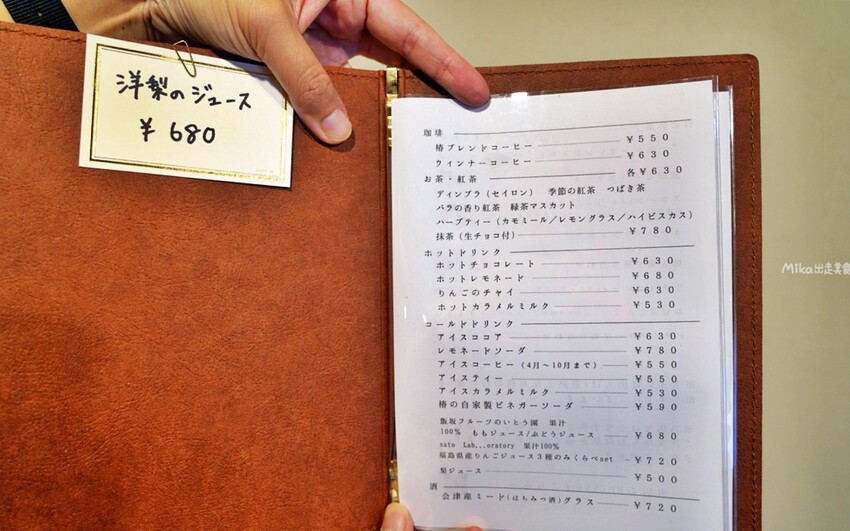 洋梨のジュース
¥680
珈琲
椿ブレンドコーヒー ¥550
ウィンナーコーヒー ¥630
お茶・紅茶 各¥630
ディンブラ(セイロン) 季節の紅茶 つばき茶
バラの香り紅茶 緑茶マスカット
ハーブティー(カモミール/レモングラス/ハイビスカス)
抹茶(生チョコ付) ¥780
ホットドリンク
ホットチョコレート ¥630
ホットレモネード ¥680
りんごのチャイ ¥630
ホットカラメルミルク ¥530
コールドドリンク
アイスココア ¥630
レモネードソーダ ¥780
アイスコーヒー(4月~10月まで) ¥550
アイスティー ¥550
アイスカラメルミルク ¥530
椿の自家製ビネガーソーダ ¥590
飯坂フルーツのいとう園 果汁
100% ももジュース/ぶどうジュース ¥680
sato Lab...oratory 果汁100%
福島県産りんごジュース3種のみくらべset ¥720
梨ジュース ¥500
酒
会津産ミード(はちみつ酒)グラス ¥720
Mika出走美食